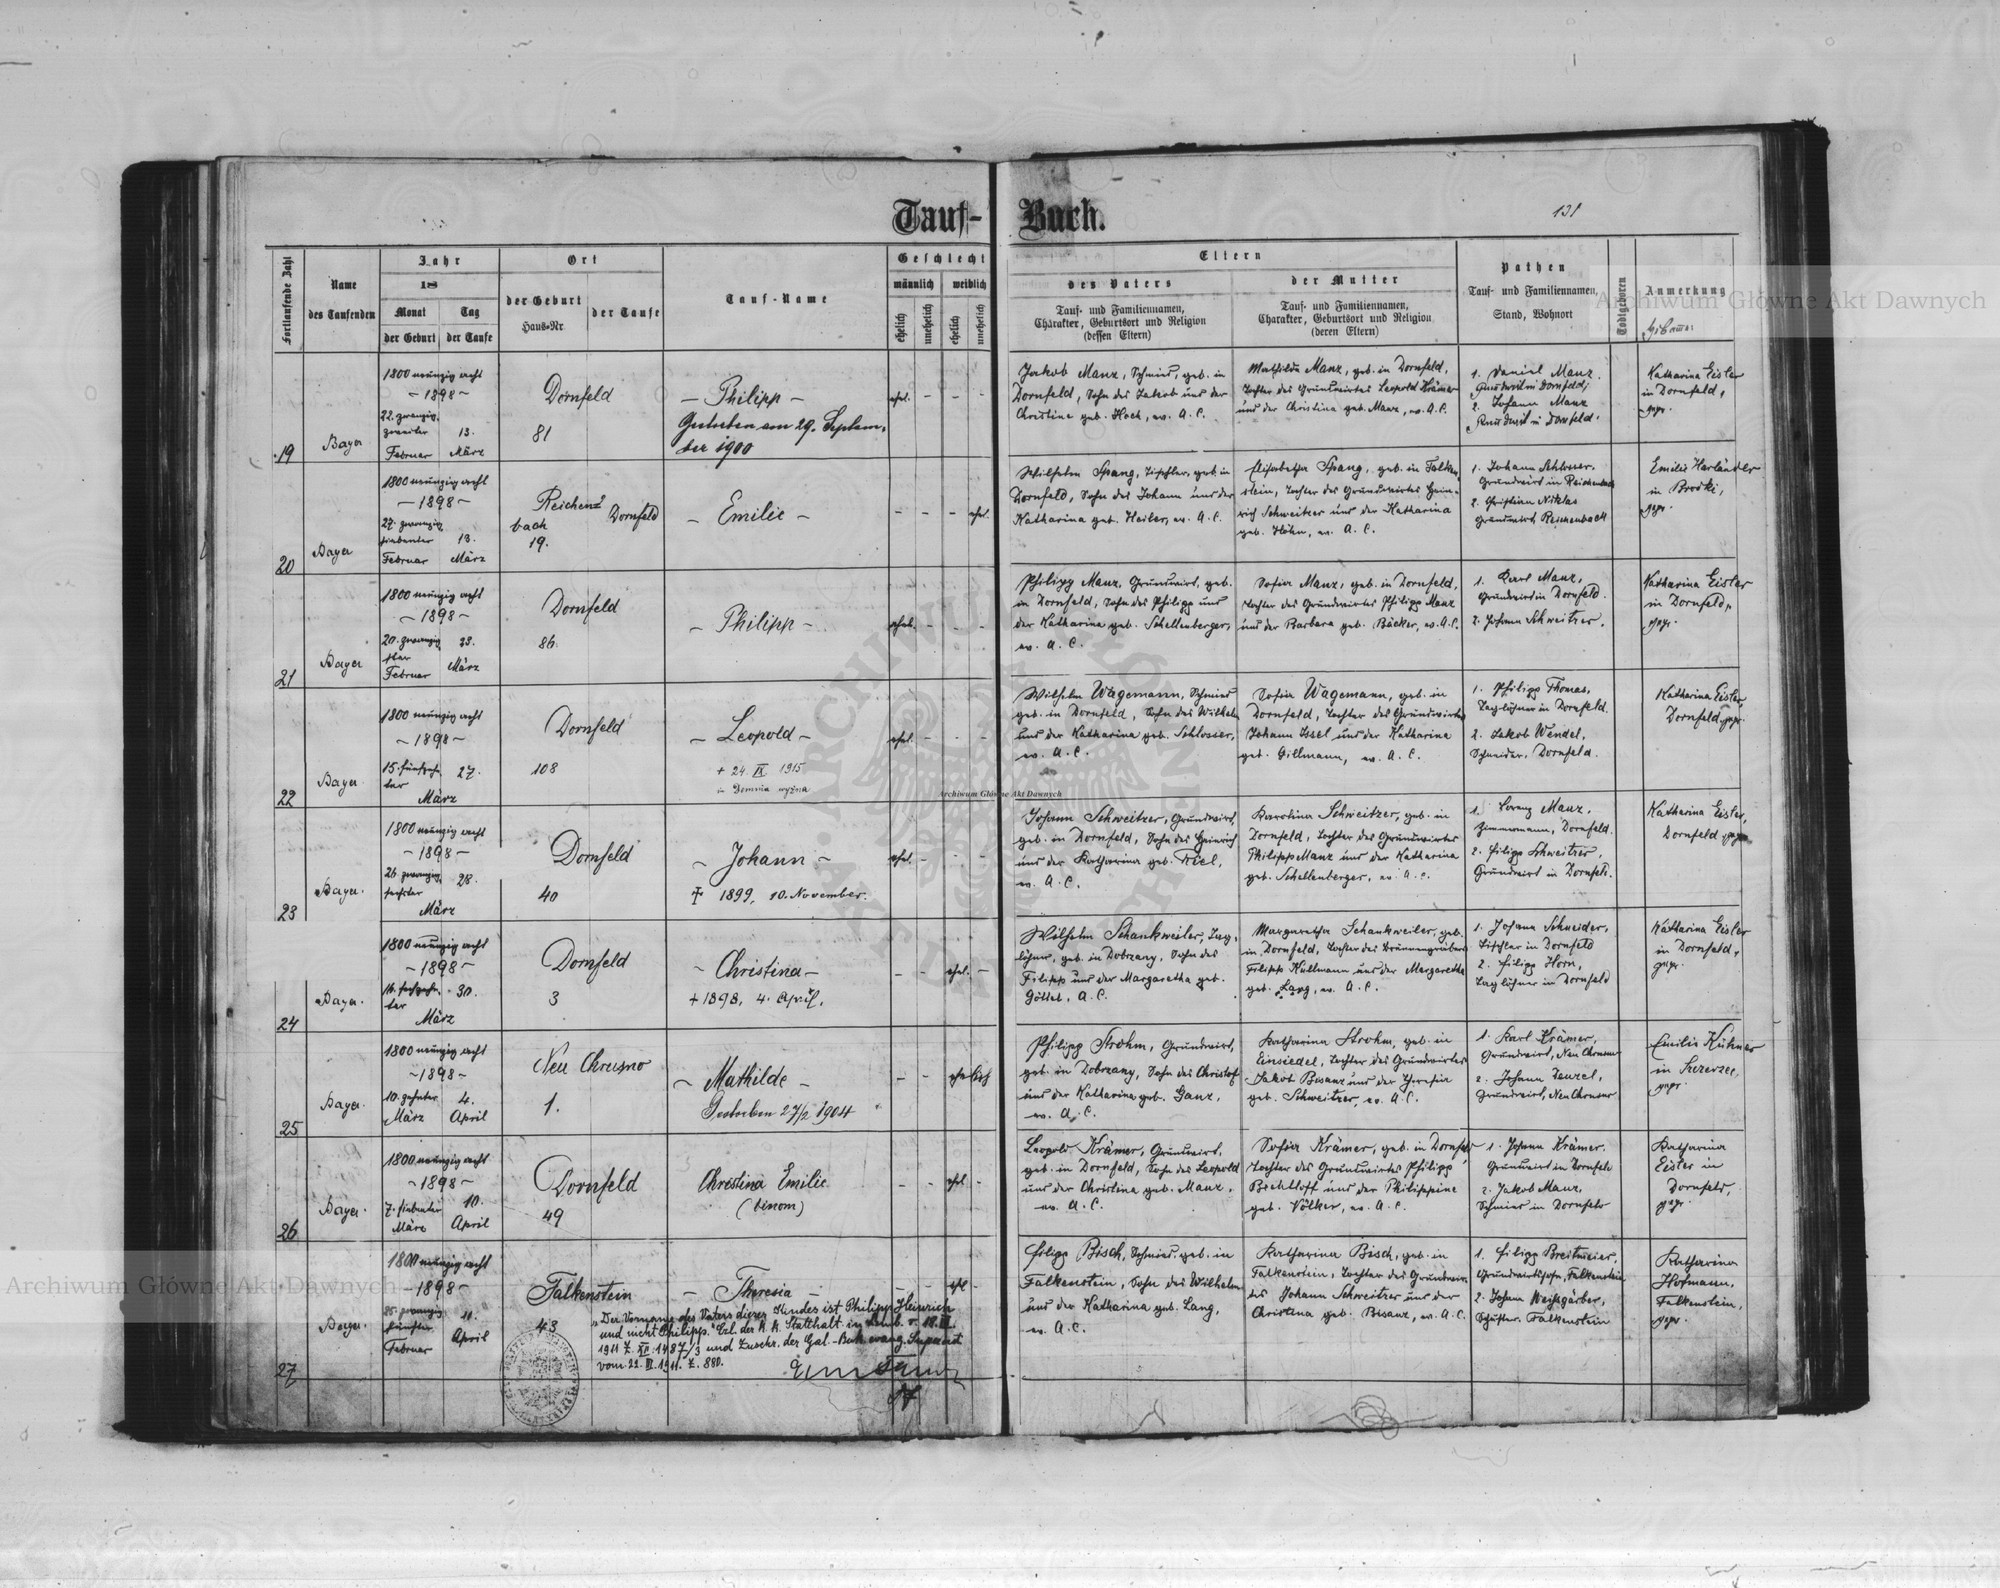 Tauf-Buch.
131
Fortlaufende Zahl
Name
des Taufenden
Jahr
18
Monat
Tag
der Geburt
der Taufe
Ort
der Geburt
Haus-Nr.
der Taufe
Tauf-Name
Geschlecht
männlich
weiblich
ehelich
unehelich
ehelich
unehelich
Eltern
des Vaters
Tauf- und Familiennamen,
Charakter, Geburtsort und Religion
(dessen Eltern)
der Mutter
Tauf- und Familiennamen,
Charakter, Geburtsort und Religion
(deren Eltern)
Pathen
Tauf- und Familiennamen,
Stand, Wohnort
Todtgeboren
Anmerkung
19
Bayer
1800 neunzig acht
- 1898 -
22. zwanzig
zweiter
Februar
13.
März
Dornfeld
81
- Philipp -
Gestorben am 29. Septem-
ber 1900
ehel.
Jakob Manz, Schmied, geb. in
Dornfeld, Sohn des Jakob und der
Christine geb. Hoch, ev. A. C.
Mathilde Manz, geb. in Dornfeld,
Tochter des Grundwirtes Leopold Krämer
und der Christina geb. Manz, ev. A. C.
1. Daniel Manz.
Grundwirt in Dornfeld;
2. Johann Manz
Grundwirt in Dornfeld.
Katharina Eisler
in Dornfeld,
gepr.
20
Bayer
1800 neunzig acht
- 1898 -
27. zwanzig
siebenter
Februar
13.
März
Reichen-
bach
19.
Dornfeld
- Emilie -
ehel.
Wilhelm Spang, Tischler, geb. in
Dornfeld, Sohn des Johann und der
Katharina geb. Heiler, ev. A. C.
Elisabetha Spang, geb. in Falken-
stein, Tochter des Grundwirtes Hein-
rich Schweitzer und der Katharina
geb. Höhn, ev. A. C.
1. Johann Schlosser.
Grundwirt in Reichenbach
2. Christian Niklas
Grundwirt, Reichenbach
Emilie Harländer
in Brodki,
gepr.
21
Bayer
1800 neunzig acht
- 1898 -
20. zwanzig
ster
Februar
23.
März
Dornfeld
86.
- Philipp -
ehel.
Philipp Manz, Grundwirt, geb.
in Dornfeld, Sohn des Philipp und
der Katharina geb. Schellenberger,
ev. A. C.
Sofia Manz, geb. in Dornfeld,
Tochter des Grundwirtes Philipp Manz
und der Barbara geb. Bäcker, ev. A. C.
1. Karl Manz,
Grundwirt in Dornfeld.
2. Johann Schweitzer.
Katharina Eisler
in Dornfeld,
gepr.
22
Bayer
1800 neunzig acht
- 1898 -
15. fünfzehn-
ter
März
27.
Dornfeld
108
- Leopold -
+ 24. IX. 1915
in Demnia wyżna
ehel.
Wilhelm Wagemann, Schmied
geb. in Dornfeld, Sohn des Wilhelm
und der Katharina geb. Schlosser,
ev. A. C.
Sofia Wagemann, geb. in
Dornfeld, Tochter des Grundwirtes
Johann Issel und der Katharina
geb. Gillmann, ev. A. C.
1. Philipp Thomas,
Taglöhner in Dornfeld.
2. Jakob Wendel,
Schneider, Dornfeld.
Katharina Eisler,
Dornfeld, gepr.
23
Bayer.
1800 neunzig acht
- 1898 -
26 zwanzig
sechster
März
28.
Dornfeld
40
- Johann -
+ 1899, 10. November.
ehel.
Johann Schweitzer, Grundwirt,
geb. in Dornfeld, Sohn des Heinrich
und der Katharina geb.
ev. A. C.
Karolina Schweitzer, geb. in
Dornfeld, Tochter des Grundwirtes
Philipp Manz und der Katharina
geb. Schellenberger, ev. A. C.
1. Lorenz Manz,
Zimmermann, Dornfeld.
2. Filipp Schweitzer,
Grundwirt in Dornfeld.
Katharina Eisler,
Dornfeld gepr.
24
Bayer.
1800 neunzig acht
- 1898 -
16. sechzehn-
ter
März
30.
Dornfeld
3
- Christina -
+ 1898, 4. April.
ehel.
Wilhelm Schankweiler, Tag-
löhner, geb. in Dobrzany, Sohn des
Filipp und der Margaretha geb.
Göttel, A. C.
Margaretha Schankweiler, geb.
in Dornfeld, Tochter des Brunnengräbers
Filipp Küllmann und der Margaretha
geb. Lang, ev. A. C.
1. Johann Schneider,
Tischler in Dornfeld
2. Filipp Horn,
Taglöhner in Dornfeld
Katharina Eisler
in Dornfeld,
gepr.
25
Bayer.
1800 neunzig acht
- 1898 -
10. zehnter
März
4.
April
Neu Chrusno
1.
- Mathilde -
Gestorben 27/2 1904
Philipp Strohm, Grundwirt,
geb. in Dobrzany, Sohn des Christof
und der Katharina geb. Ganz,
ev. A. C.
Katharina Strohm, geb. in
Einsiedel, Tochter des Grundwirtes
Jakob Bisanz und der
geb. Schweitzer, ev. A. C.
1. Karl Krämer,
Grundwirt, Neu Chrusno
2. Johann
Grundwirt, Neu Chrusno
Emilia Kühner
in Szczerzec,
gepr.
26
Bayer.
1800 neunzig acht
- 1898 -
7. siebenter
März
10.
April
Dornfeld
49
Christina Emilie
(binom)
ehel.
Leopold Krämer, Grundwirt,
geb. in Dornfeld, Sohn des Leopold
und der Christina geb. Manz.
ev. A. C.
Sofia Krämer, geb. in Dornfeld
Tochter des Grundwirtes Philipp
Bechtloff und der Philippine
geb. Völker, ev. A. C.
1. Johann Krämer.
Grundwirt in Dornfeld
2. Jakob Manz,
Schmied in Dornfeld
Katharina
Eisler in
Dornfeld,
gepr.
27
Bayer.
1800 neunzig acht
- 1898 -
25. zwanzig
fünfter
Februar
11.
April
Falkenstein
43
- Theresia -
„Der Vorname des Vaters dieses Kindes ist Philipp Heinrich
und nicht Philipp." Erl. der k. k. Statthalt. in Lemb. v. 18. III.
1911 Z. XII. 1487/3 und Zuschr. der Gal.-Buk. evang. Superint.
vom 22. III. 1911. Z. 880.
ehel.
Filipp Bisch, Schmied, geb. in
Falkenstein, Sohn des Wilhelm
und der Katharina geb. Lang,
ev. A. C.
Katharina Bisch, geb. in
Falkenstein, Tochter des Grundwir-
tes Johann Schweitzer und der
Christina geb. Bisanz, ev. A. C.
1. Filipp Breitmeier,
Grundwirtssohn, Falkenstein
2. Johann Weißgärber,
Schuster, Falkenstein
Katharina
Hofmann,
Falkenstein,
gepr.
Archiwum Główne Akt Dawnych
Archiwum Główne Akt Dawnych
Archiwum Główne Akt Dawnych